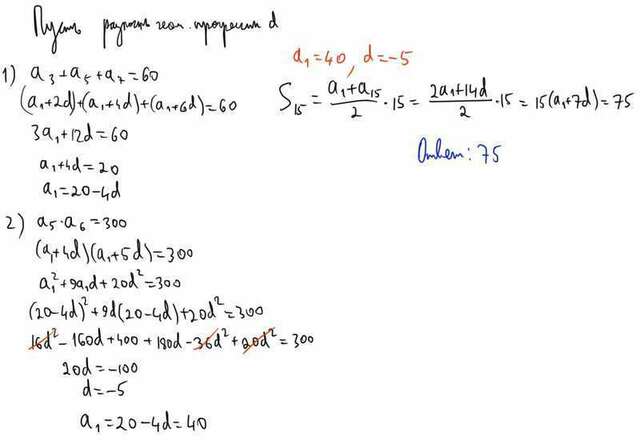 Пусть разность геом. прогрессии d
1) a₃+a₅+a₇=60
(a₁+2d)+(a₁+4d)+(a₁+6d)=60
3a₁+12d=60
a₁+4d=20
a₁=20-4d
2) a₅·a₆=300
(a₁+4d)(a₁+5d)=300
a₁²+9a₁d+20d²=300
(20-4d)²+9d(20-4d)+20d²=300
16d²-160d+400+180d-36d²+20d²=300
20d=-100
d=-5
a₁=20-4d=40
a₁=40, d=-5
S₁₅=(a₁+a₁₅)/2·15=(2a₁+14d)/2·15=15(a₁+7d)=75
Ответ: 75